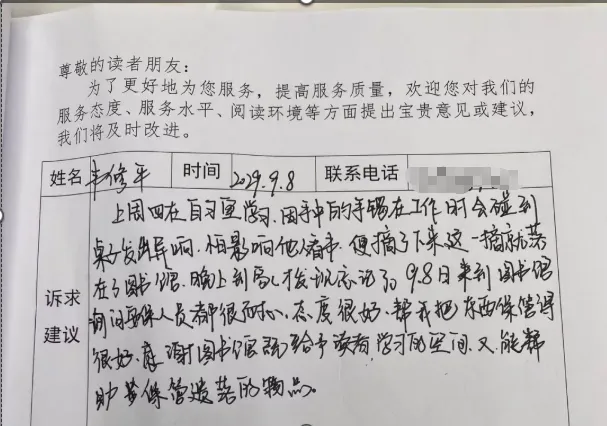 尊敬的读者朋友：
为了更好地为您服务，提高服务质量，欢迎您对我们的
服务态度、服务水平、阅读环境等方面提出宝贵意见或建议，
我们将及时改进。
姓名 修平 时间 9.8 联系电话
诉求
建议
上周四在自习室学习.因手中的手镯在工作时会碰到
桌子发出异响.怕影响他人看书.便摘了下来这一摘就落
在了图书馆.晚上到家才发现忘记了9.8日来到图书馆
询问 保人员都很耐心.态度很好.帮我把东西保管得
很好.感谢图书馆既给予读者学习的空间.又能帮
助 保管遗落的物品。